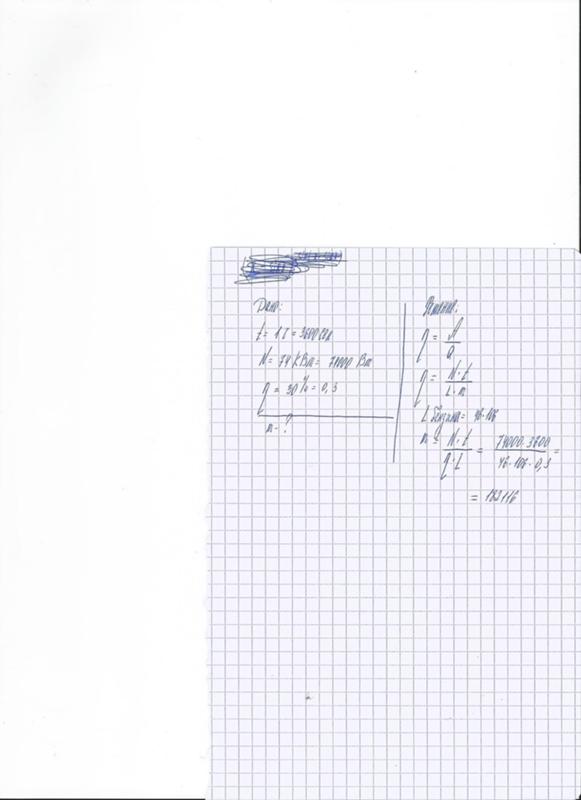 Дано:
t = 1 г = 3600 сек
N = 74 КВт = 74000 Вт
η = 30 % = 0,3
m - ?
Решение:
η = A / Q
η = N · t / L · m
L бензина = 46 · 106
m = N · t / η · L = 74000 · 3600 / 46 · 106 · 0,3 =
= 182116